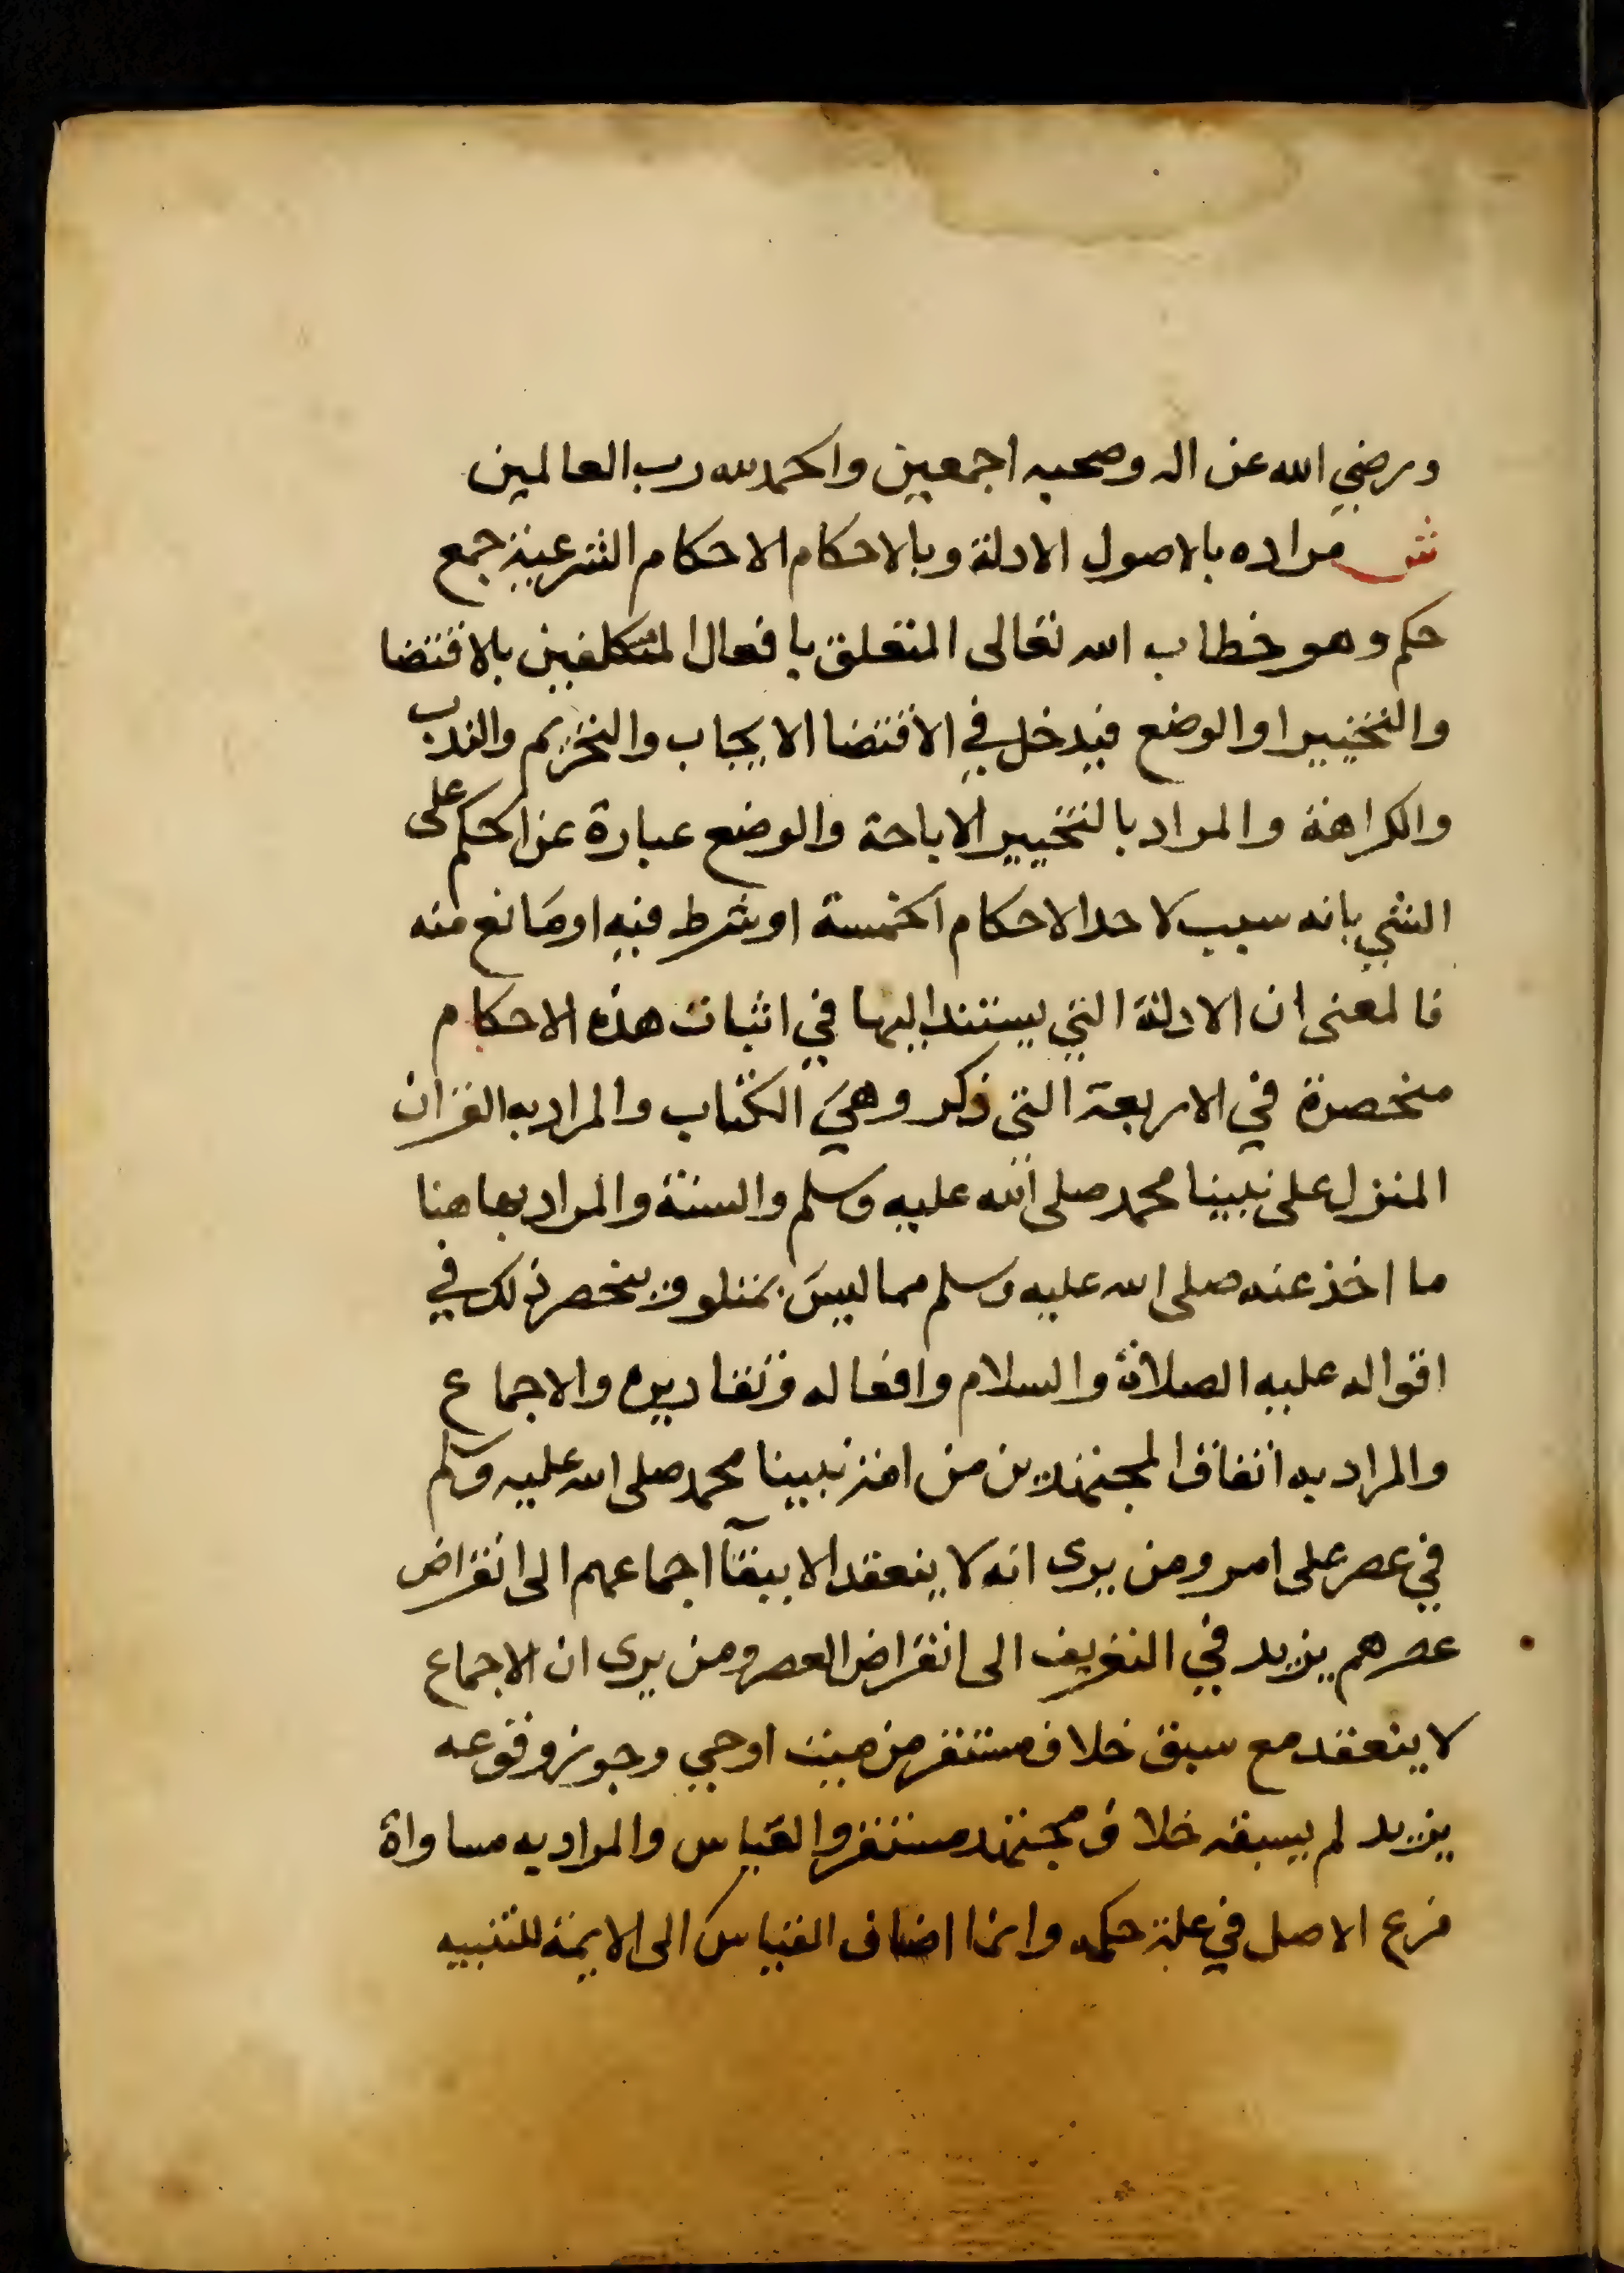 ورضي الله عن اله وصحبه اجمعين والحمد لله رب العالمين
ش مراده بالاصول الادلة وبالاحكام الاحكام الشرعية جمع
حكم وهو خطاب الله تعالى المتعلق بافعال المتكلفين بالاقتضا
والتخيير او الوضع فيدخل في الاقتضا الايجاب والتحريم والندب
والكراهة والمراد بالتخيير الاباحة والوضع عبارة عن الحكم على
الشي بانه سبب لاحد الاحكام الخمسة او شرط فيه او مانع منه
فالمعنى ان الادلة التي يستند اليها في اثبات هذه الاحكام
منحصرة في الاربعة التي ذكر وهي الكتاب والمراد به القران
المنزل على نبينا محمد صلى الله عليه وسلم والسنة والمراد بها هنا
ما اخذ عنه صلى الله عليه وسلم مما ليس بمتلو وينحصر ذلك في
اقواله عليه الصلاة والسلام وافعاله وتقاديره والاجماع
والمراد به اتفاق المجتهدين من امة نبينا محمد صلى الله عليه وسلم
في عصر على امر ومن يرى انه لا ينعقد الا ببقآ اجماعهم الى انقراض
عصرهم يزيد في التعريف الى انقراض العصر ومن يرى ان الاجماع
لا ينعقد مع سبق خلاف مستقر من ميت او حي وجوز وقوعه
يزيد لم يسبقه خلاف مجتهد مستقر والقياس والمراد به مساواة
فرع الاصل في علة حكمه وانما اضاف القياس الى الايمة للتنبيه